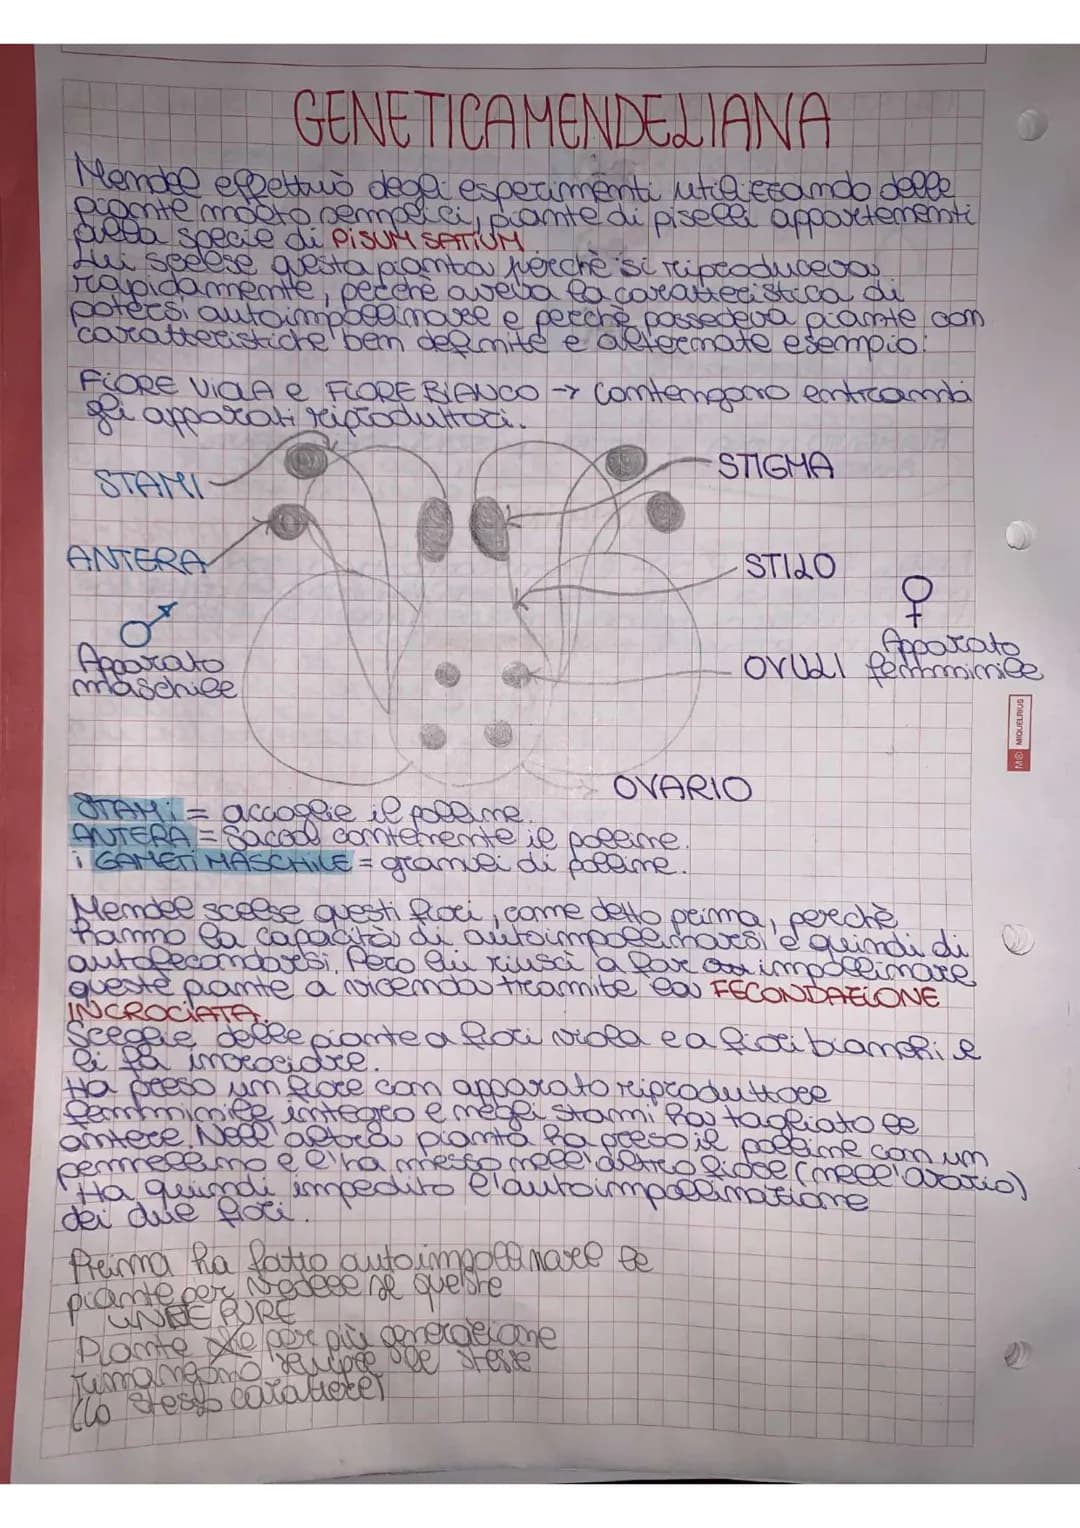 GENETICA MENDELIANA
Mendel effettuò degli esperimenti utilizzando delle
piante molto semplici, piante di piselli appartenenti
alla specie di PiSUM SATIUM.
Lui scelse questa pianta perchè si riproduceva
rapidamente, perchè aveva la caratteristica di
potersi autoimpollinare e perchè possedeva piante con
caratteristiche ben definite e alternate esempio:
FiORE ViOLA e FiORE BIANCO → contengono entrambi
gli apparati riproduttori.
STAMI
STIGMA
ANTERA
STILO
Apparato
maschile
OVULI
Apparato
femminile
OVARIO
STAMi = accoglie il polline.
ANTERA = Sacca contenente il polline.
i GAMETi MASCHiLE = granuli di polline.
Mendel scelse questi fiori, come detto prima, perchè
hanno la capacità di autoimpollinarsi e quindi di
autofecondarsi. Pero lui riuscì a far impollinare
queste piante a vicenda tramite la FECONDAZIONE
INCROCIATA.
Sceglie delle piante a fiori viola e a fiori bianchi e
li fa incrociare.
Ha preso un fiore con apparato riproduttore
femminile integro e negli stami ha tagliato le
antere. Nell'altra pianta ha preso il polline con un
pennellino e l'ha messo nell'altro fiore (nell'ovario)
Ha quindi impedito l'autoimpollinazione
dei due fiori.
Prima ha fatto autoimpollinare le
piante per vedere se queste
LINEE PURE
Piante che per più generazione
rimangono sempre le stesse
(lo stesso carattere)
MIQUELRIUS